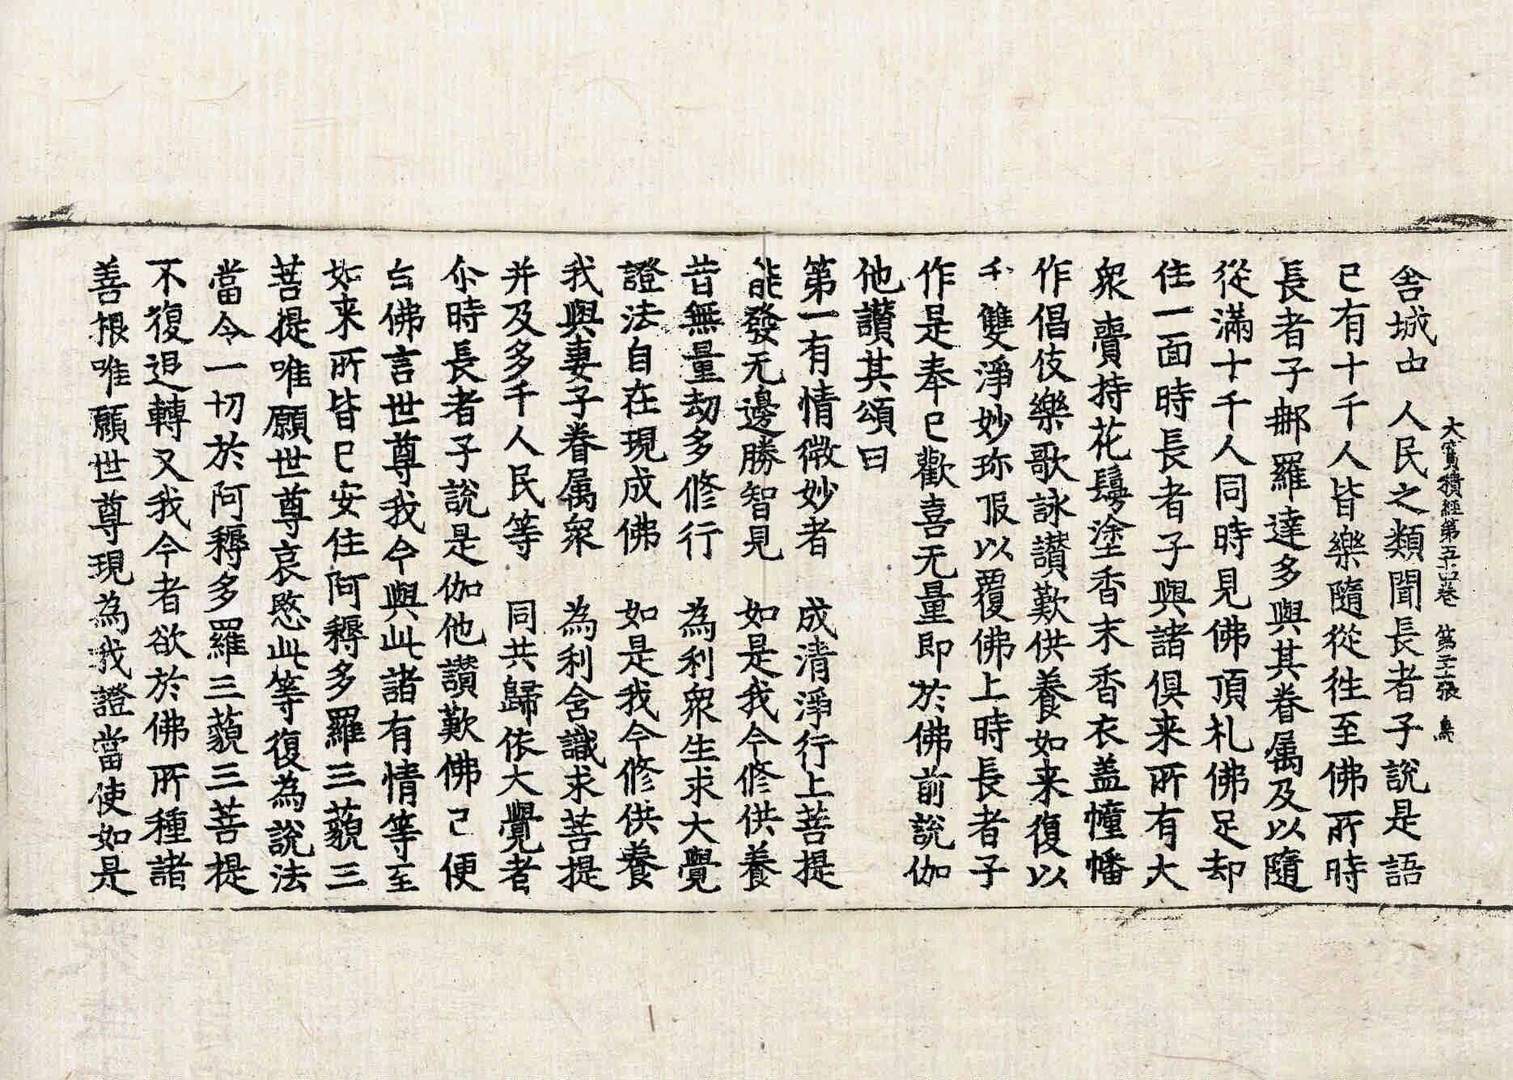 大寶積經第五十四卷　第二十二張　鳥
舍城中　人民之類聞長者子說是語
已有十千人皆樂隨從徃至佛所時
長者子那羅達多與其眷属及以隨
從滿十千人同時見佛頂礼佛足却
住一面時長者子與諸俱来所有大
衆賷持花鬘塗香末香衣盖幢幡
作倡伎樂歌詠讃歎供養如来復以
千雙淨妙珎服以覆佛上時長者子
作是奉已歡喜无量即於佛前說伽
他讃其頌曰
第一有情微妙者　成清淨行上菩提
能發无邊勝智見　如是我今修供養
昔無量劫多修行　為利衆生求大覺
證法自在現成佛　如是我今修供養
我與妻子眷属衆　為利含識求菩提
并及多千人民等　同共歸依大覺者
尒時長者子說是伽他讃歎佛已便
白佛言世尊我今與此諸有情等至
如来所皆已安住阿耨多羅三藐三
菩提唯願世尊哀愍此等復為說法
當令一切於阿耨多羅三藐三菩提
不復退轉又我今者欲於佛所種諸
善根唯願世尊現為我證當使如是